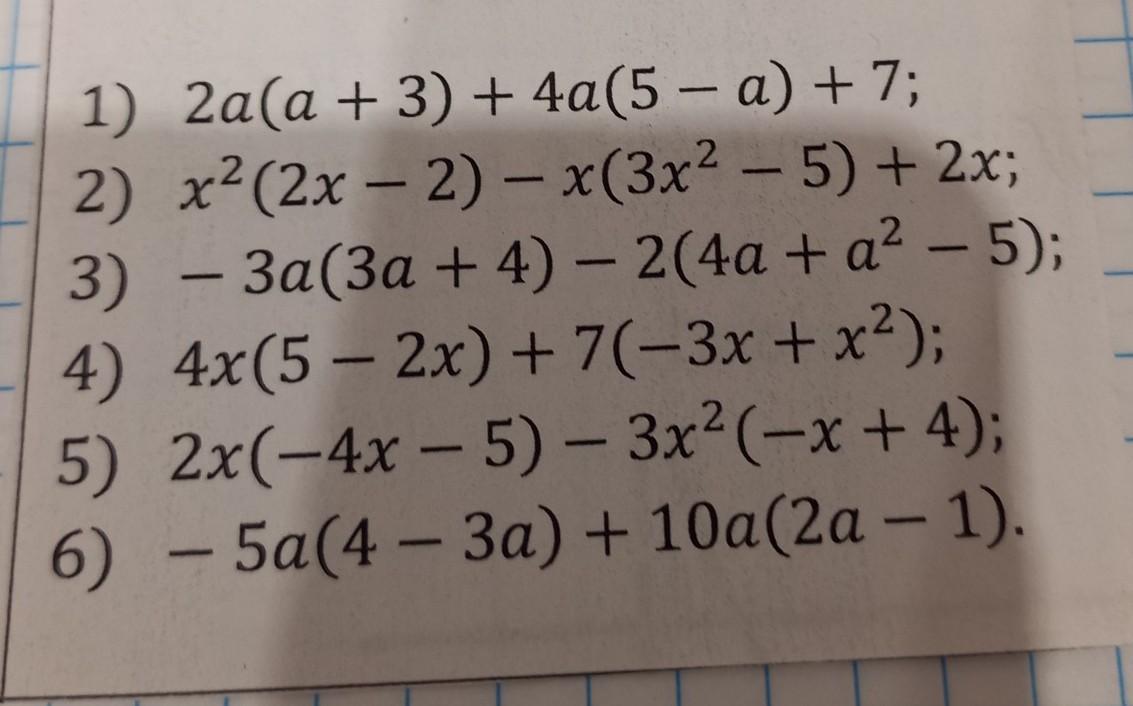 1) 2a(a + 3) + 4a(5 − a) + 7;
2) x²(2x − 2) − x(3x² − 5) + 2x;
3) − 3a(3a + 4) − 2(4a + a² − 5);
4) 4x(5 − 2x) + 7(−3x + x²);
5) 2x(−4x − 5) − 3x²(−x + 4);
6) − 5a(4 − 3a) + 10a(2a − 1).